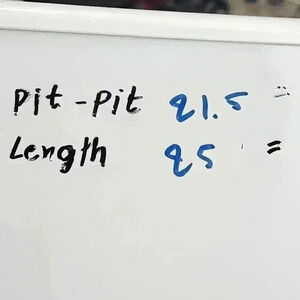 Pit - Pit 21.5 =
Length 25 =